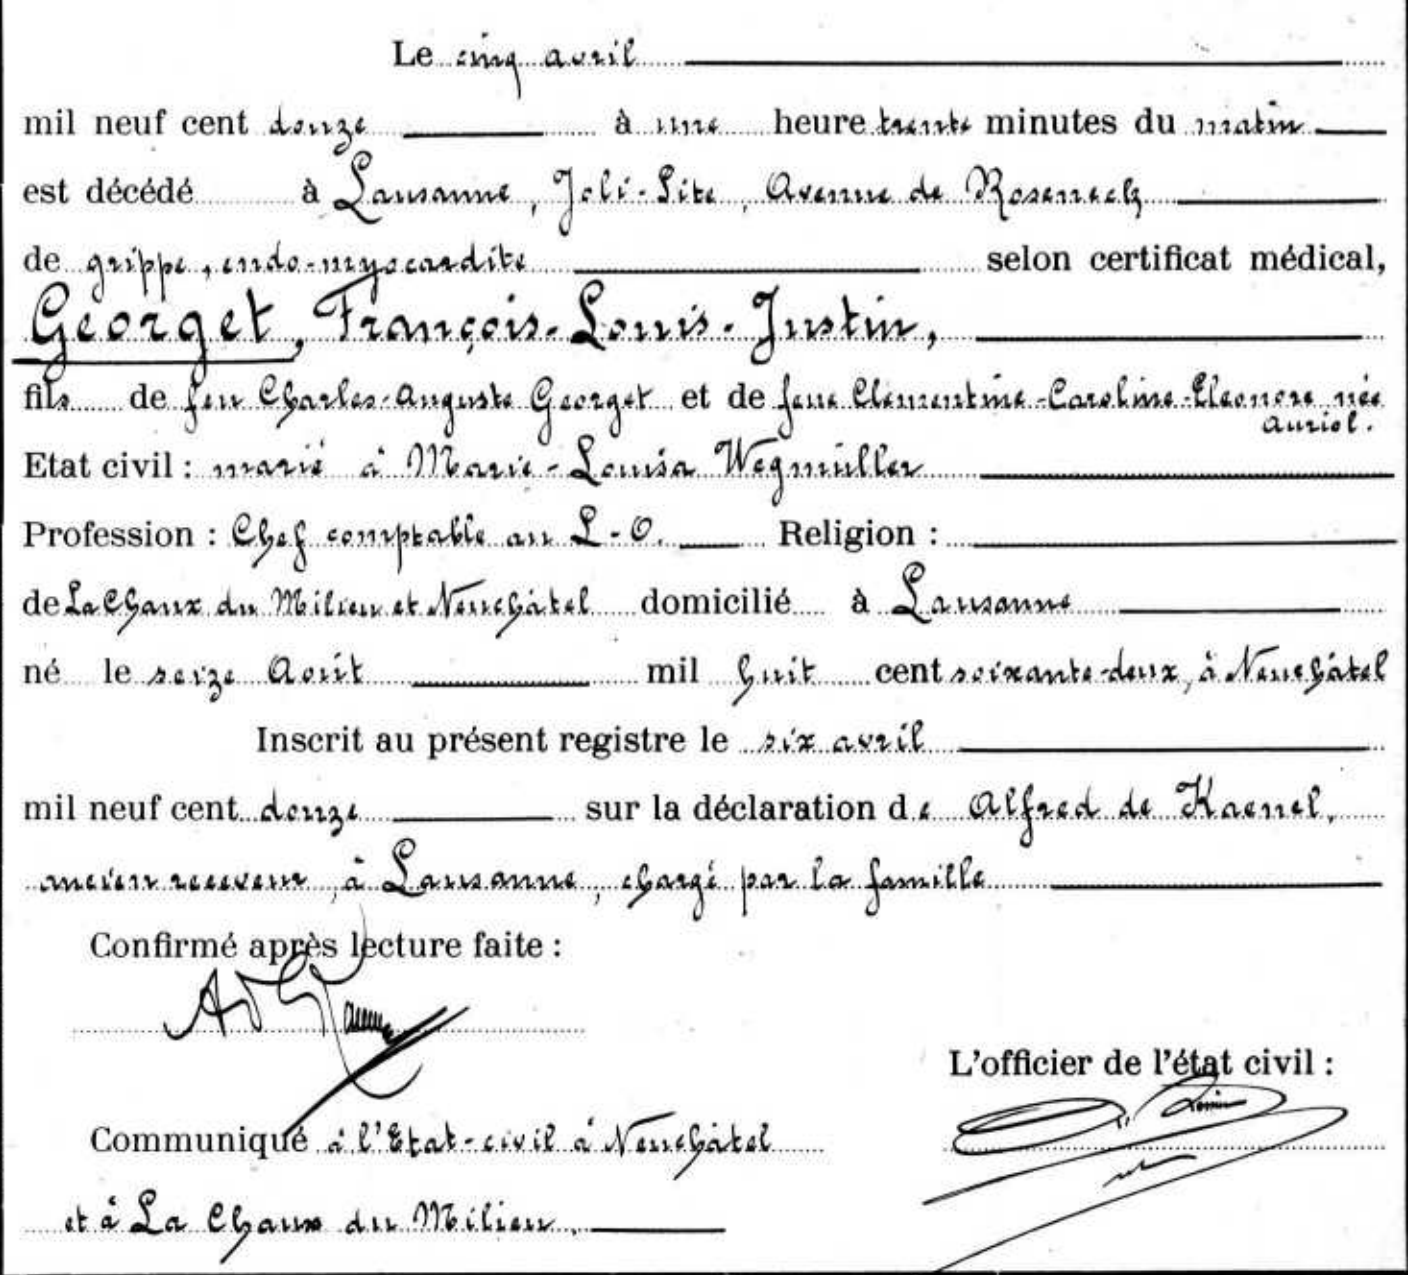 Le cinq avril
mil neuf cent douze à une heure trente minutes du matin
est décédé à Lausanne, Joli-Site, Avenue de Roseneck
de grippe, endo-myocardite selon certificat médical,
Georget, François-Louis-Justin,
fils de feu Charles-Auguste Georget et de feue Clementine-Caroline-Eleonore née
Auriol.
Etat civil : marié à Marie-Louisa Wegmüller
Profession : Chef comptable au L-O. Religion :
de La Chaux du Milieu et Neuchâtel domicilié à Lausanne
né le seize Août mil huit cent soixante-deux, à Neuchâtel
Inscrit au présent registre le six avril
mil neuf cent douze sur la déclaration de Alfred de Kaenel,
ancien receveur, à Lausanne, chargé par la famille
Confirmé après lecture faite :
L'officier de l'état civil :
Communiqué à l'Etat-civil à Neuchâtel
et à La Chaux du Milieu.